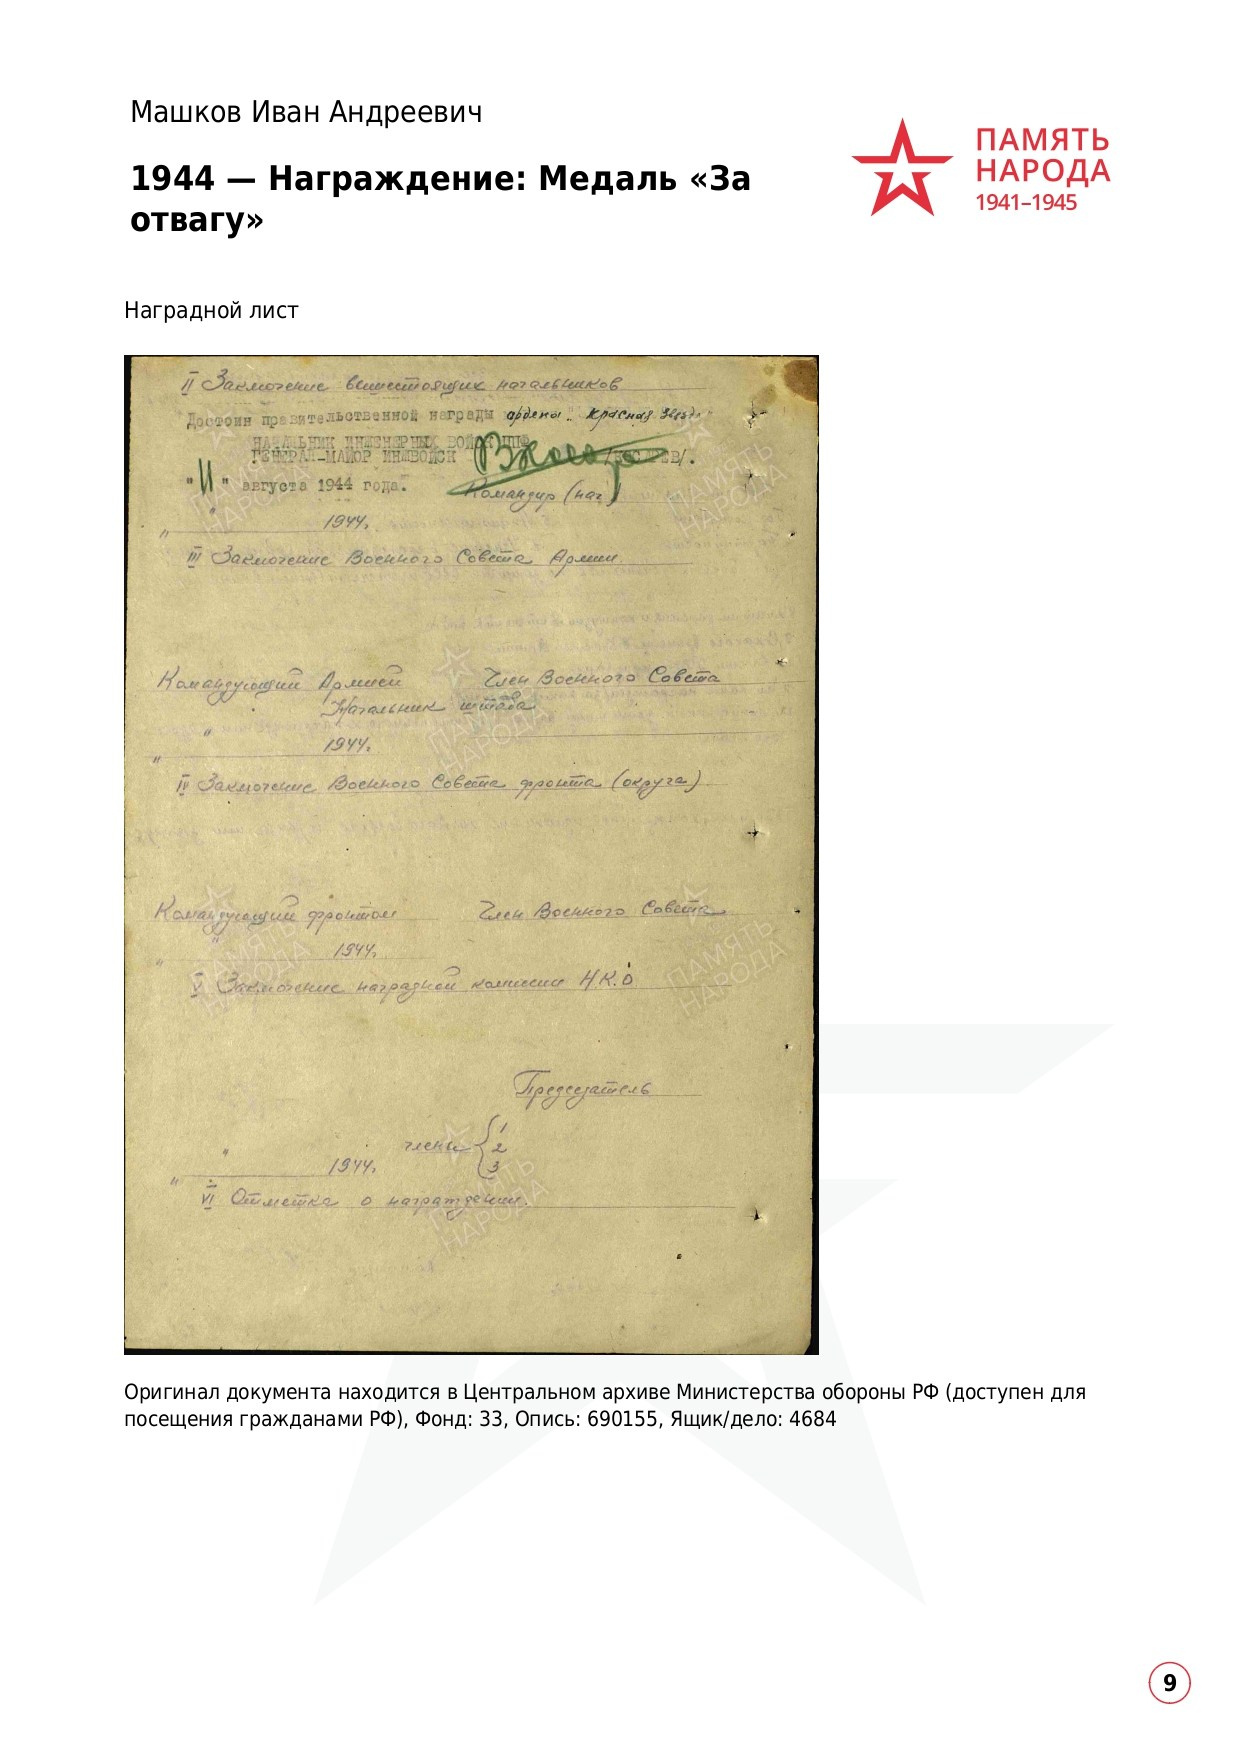 Машков Иван Андреевич
1944 — Награждение: Медаль «За
отвагу»
ПАМЯТЬ
НАРОДА
1941–1945
Наградной лист
II Заключение вышестоящих начальников
Достоин правительственной награды ордена "Красная Звезда"
НАЧАЛЬНИК ИНЖЕНЕРНЫХ ВОЙСК
ГЕНЕРАЛ-МАЙОР ИНЖВОЙСК
"11" августа 1944 года.
Командир (нач)
" " 1944г.
III Заключение Военного Совета Армии
Командующий Армией Член Военного Совета
Начальник штаба
" " 1944г.
IV Заключение Военного Совета фронта (округа)
Командующий фронтом Член Военного Совета
" " 1944г.
V Заключение наградной комиссии Н.К.О
Председатель
члены { 1
2
" " 1944г. 3
VI Отметка о награждении.
Оригинал документа находится в Центральном архиве Министерства обороны РФ (доступен для
посещения гражданами РФ), Фонд: 33, Опись: 690155, Ящик/дело: 4684
9